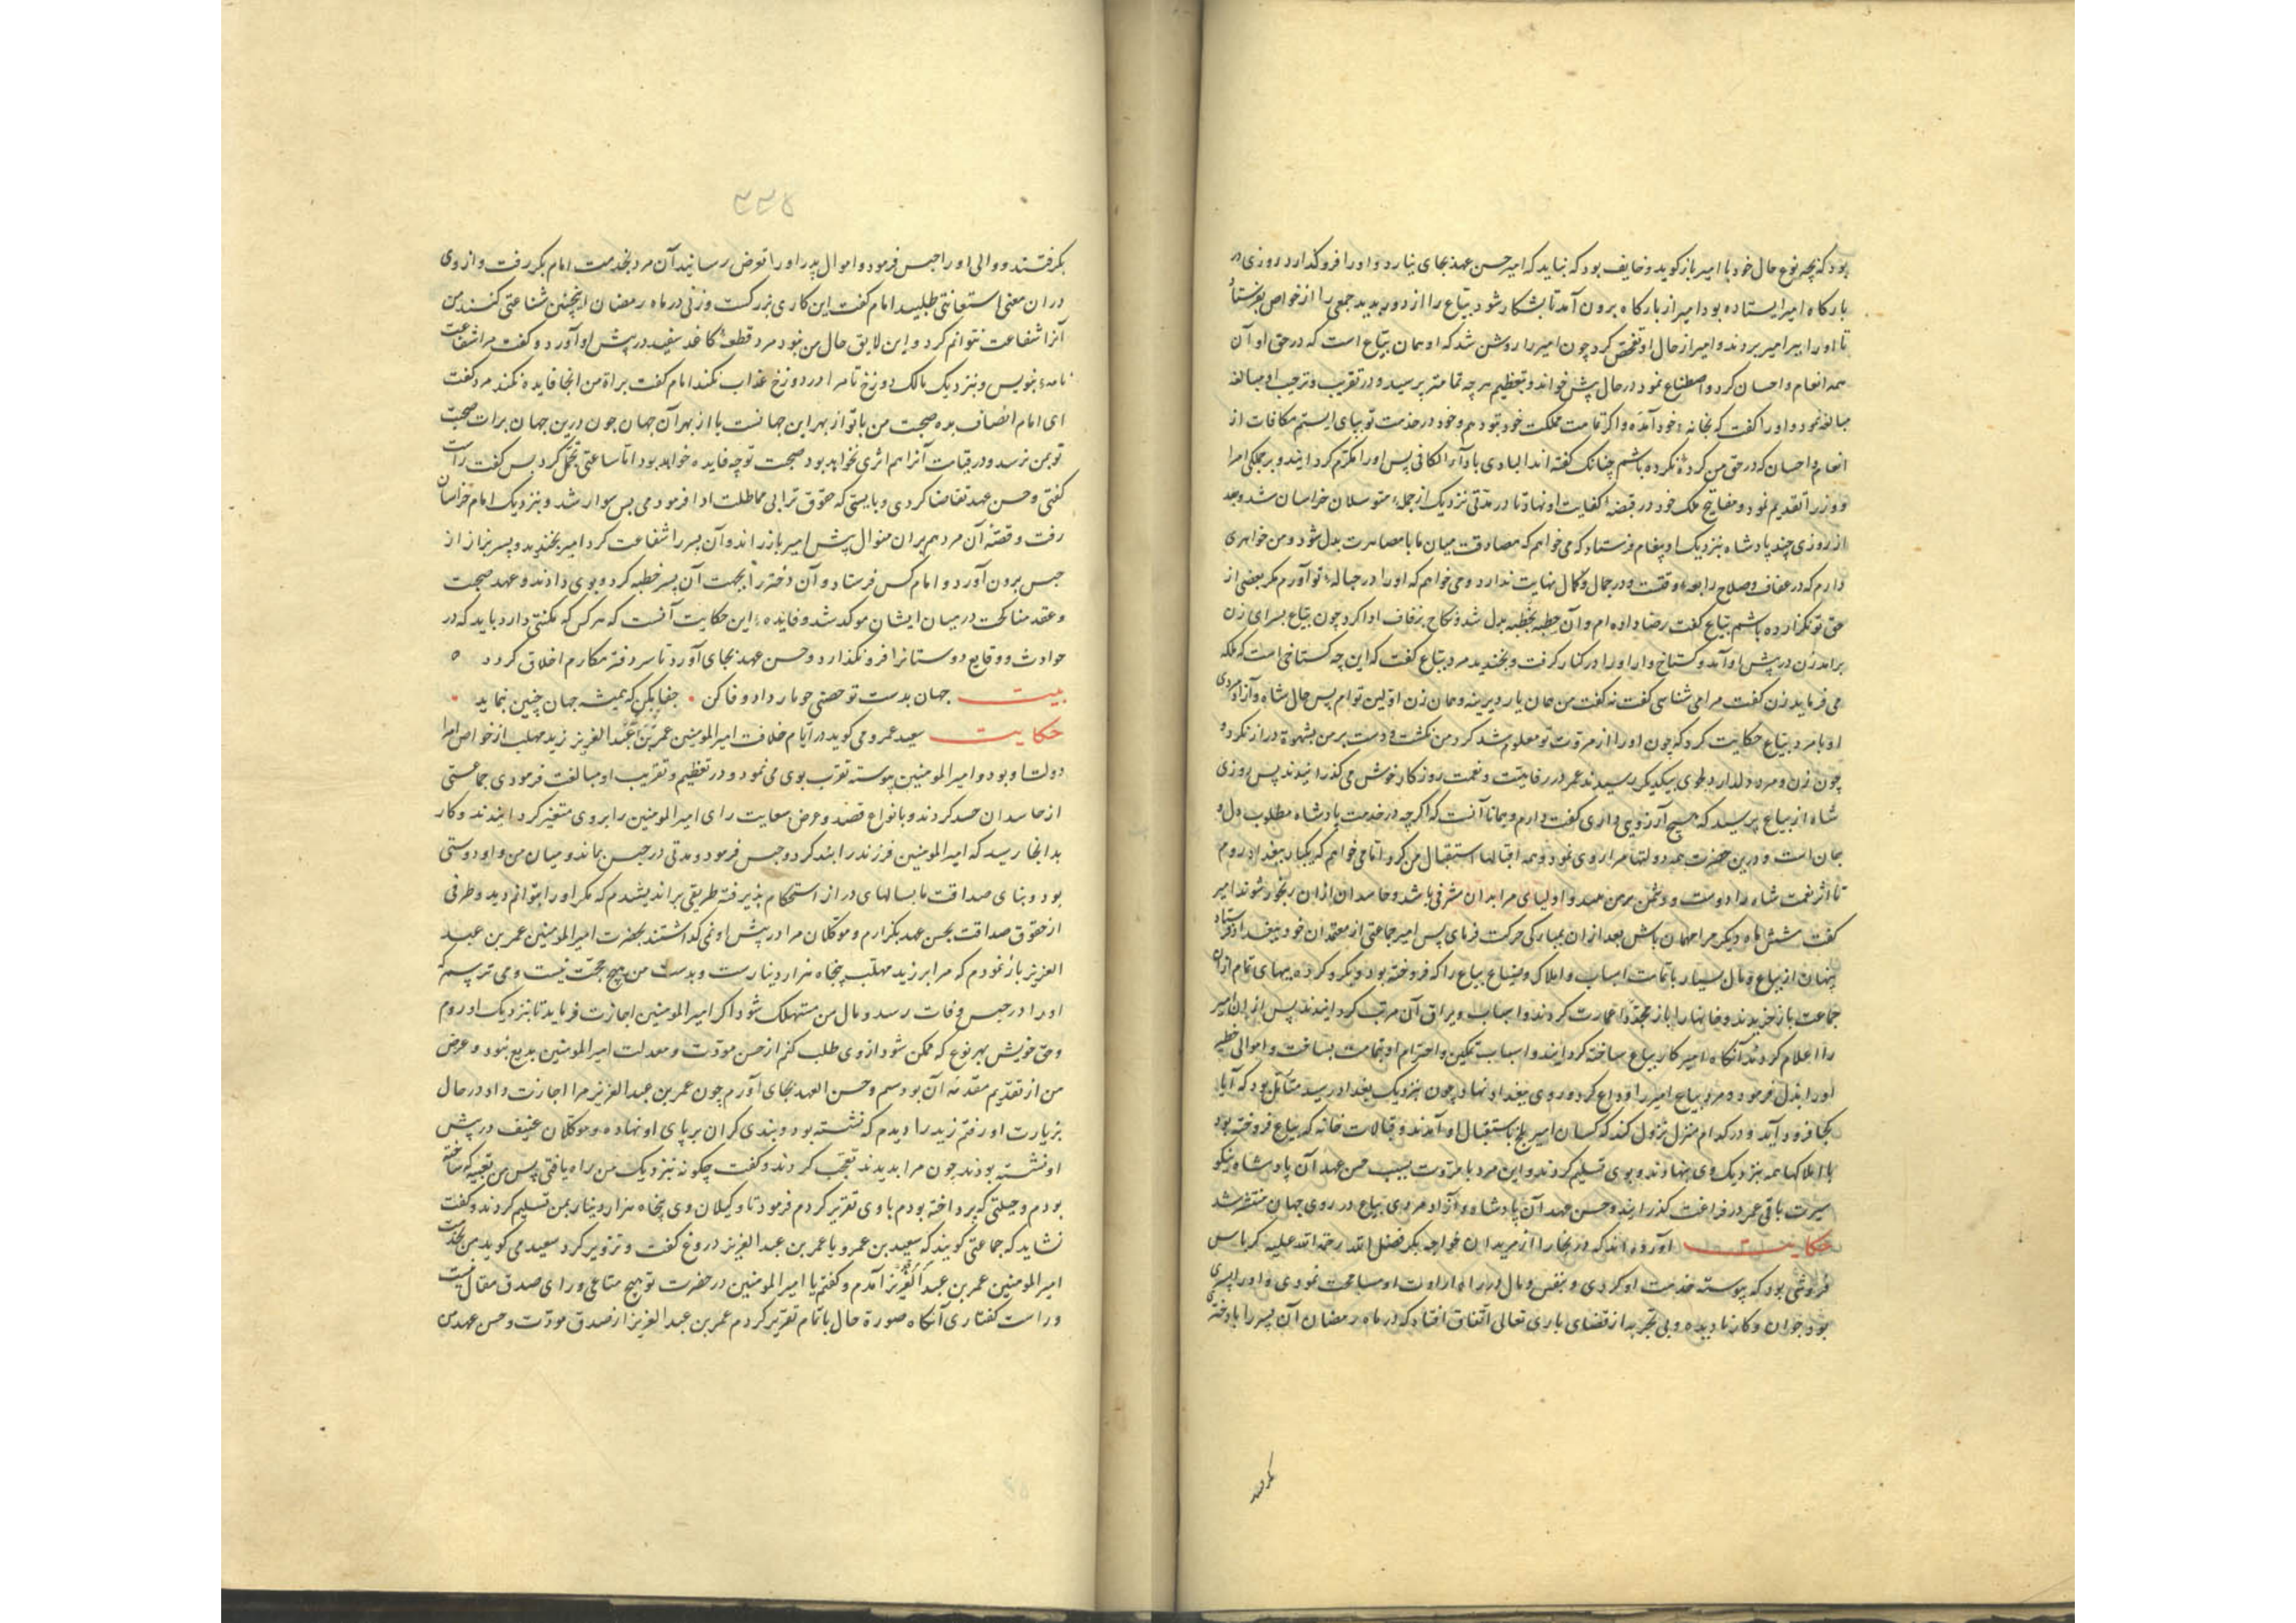 بود که بچه نوع حال خود با امیر باز گوید و خایف بود که نباید که امیر حسن عهد بجای نیارد و او را فرو گذارد روزی در
بارگاه امیر ایستاده بود امیر از بارگاه برون آمد تا بشکار شود بیاع را از دور بدید جمعی را از خواص بفرستاد
تا او را ببر امیر بردند و امیر از حال او تفحص کرد چون امیر را روشن شد که او همان بیاع است که در حق او آن
همه انعام و احسان کرد و اصطناع نمود در حال پیش خواند و بتعظیم هر چه تمامتر بپرسید و در تقریب و ترحیب او مبالغه
مبالغه نمود و او را گفت که بخانهٔ خود آمدهٔ و اگر تمامت مملکت خود بتو دهم و خود در خدمت تو بپای ایستم مکافات از
انعام و احسان که در حق من کردهٔ نکرده باشم چنانک گفته اند البادی بادآر الکافی پس او را مکرم گردانید و بر جملگی امرا
و وزرا تقدیم نمود و مفاتیح ملک خود در قبضهٔ کفایت او نهاد تا در مدتی نزدیک از جملهٔ متوسلان خراسان شد و بعد
از روزی چند پادشاه بنزدیک او پیغام فرستاد که می خواهم که مصادقت میان ما بمصاهرت بدل شود و من خواهری
دارم که در عفاف و صلاح رابعهٔ وقتست و در جمال و کمال نهایت ندارد و می خواهم که او را در حبالهٔ تو آورم مگر بعضی از
حق تو گزارده باشم بیاع گفت رضا داده ام و آن خطبه بخطبه بدل شد و نکاح بزفاف ادا کرد چون بیاع بسرای زن
برآمد زن در پیش او آمد و گستاخ وار او را در کنار گرفت و بخندید مرد بیاع گفت که این چه گستاخی است که ملکه
می فرماید زن گفت مرا می شناسی گفت نه گفت من همان یار دیرینه و همان زن اولین توام پس حال شاه و آزادمردی
او با مرد بیاع حکایت کرد که چون او را از مروت تو معلوم شد که دست بر من بشهوة دراز نکرد و
چون زن و مرد دلدار در طوی بیکدیگر رسیدند عمر در رفاهیت و نعمت روزگار خوش می گذرانیدند پس روزی
شاه از بیاع پرسید که هیچ آرزویی داری گفت دارم و همانا آنست که اگرچه در خدمت پادشاه مطلوب دل و
جان است و درین حضرت همه دولتها مرا روی نمود و همه اقبالها استقبال من کرد اما می خواهم که یکبار ببغداد روم
تا اثر نعمت شاه را دوست و دشمن بر من ببیند و اولیای مرا بدان شرفی باشد و حاسدان ازان رنجور شوند امیر
گفت شش ماه دیگر مرا مهمان باش بعد ازان بمبارکی حرکت فرمای پس امیر جماعتی از معتمدان خود ببغداد فرستاد
پنهان از بیاع و مال بسیار تا تمامت اسباب و املاک و ضیاع بیاع را که فروخته بود و گرو کرده ببهای تمام ازان
جماعت باز خریدند و خانها را باز مجددا عمارت کردند و اسباب و یراق آن مرتب گردانیدند پس ازان امیر
را اعلام کردند آنگاه امیر کار بیاع ساخته گردانید و اسباب تمکین و احترام او بتمامت بساخت و اموالی خطیر
او را بذل فرمود و مرد بیاع امیر را وداع کرد و روی ببغداد نهاد چون بنزدیک بغداد رسید متأمل بود که آیا
کجا فرود آید و در کدام منزل نزول کند که کسان امیر بلخ باستقبال او آمدند و قبالات خانه که بیاع فروخته بود
با املاکها همه بنزدیک وی بنهادند و بوی تسلیم کردند و این مرد با مروت بسبب حسن عهد آن پادشاه نیکو
سیرت باقی عمر در فراغت گذرانید و حسن عهد آن پادشاه و آزاد مردی بیاع در روی جهان منتشر شد
حکایت آورده اند که در بخارا از مریدان خواجه بکر فضل الله رحمة الله علیه کرباس
فروشی بود که پیوسته خدمت او کردی و بنفس و مال در راه ارادت او مسامحت نمودی و او را پسری
بود جوان و کار نادیده و بی تجربه از قضای باری تعالی اتفاق افتاد که در ماه رمضان آن پسر را با دختر
بگرفتند
۳۳۴
بگرفتند و والی او را حبس فرمود و اموال پدر او را تعرض رسانید آن مرد بخدمت امام بکر رفت و از وی
دران معنی استعانتی طلبید امام گفت این کاری بزرگست و زنی در ماه رمضان اینچنین شناعتی کنند من
آنرا شفاعت نتوانم کرد و این لایق حال من نبود مرد قطعهٔ کاغذ سفید در پیش او آورد و گفت مرا شفاعت
نامهٔ بنویس و بنزدیک مالک دوزخ تا مرا در دوزخ عذاب نکند امام گفت براة من آنجا فایده نکند مرد گفت
ای امام انصاف بده صحبت من با تو از بهر این جهانست یا از بهر آن جهان چون درین جهان برات صحبت
تو بمن نرسد و در قیامت آنرا هم اثری نخواهد بود صحبت تو چه فایده خواهد بود امام ساعتی تأمل کرد پس گفت راست
گفتی و حسن عهد تقاضا کردی و بایستی که حقوق ترا بی مماطلت ادا فرمودمی پس سوار شد و بنزدیک امام خراسان
رفت و قصهٔ آن مرد هم بران منوال پیش امیر باز راند و آن پسر را شفاعت کرد امیر بخندید و پسر بزاز از
حبس برون آورد و امام کس فرستاد و آن دختر را بجهت آن پسر خطبه کرد و بوی دادند و عهد صحبت
و عقد مناکحت در میان ایشان موکد شد و فایدهٔ این حکایت آنست که هر کس که مکنتی دارد باید که در
حوادث و وقایع دوستانرا فرو نگذارد و حسن عهد بجای آورد تا سر دفتر مکارم اخلاق گردد ٥
بیت جهان بدست تو حصنی حو مار داد وفا کن • جفا مکن که همیشه جهان چنین نماید •
حکایت سعید عمرو می گوید در ایام خلافت امیر المومنین عمر بن عبد العزیز زید مهلب از خواص امرا
دولت او بود و امیر المومنین پیوسته تقرب بوی می نمود و در تعظیم و تقریب او مبالغت فرمودی جماعتی
از حاسدان حسد کردند و بانواع قصد و عرض سعایت رای امیر المومنین را بروی متغیر گردانیدند و کار
بدانجا رسید که امیر المومنین فرزند را بند کرد و حبس فرمود و مدتی در حبس بماند و میان من و او دوستی
بود و بنای صداقت ما بسالهای دراز استحکام پذیرفته طریقی براندیشیدم که مگر او را بتوانم دید و طرفی
از حقوق صداقت بحسن عهد بگزارم و موکلان مرا در پیش او نمی گذاشتند بحضرت امیر المومنین عمر بن عبد
العزیز باز نمودم که مرا بر زید مهلب پنجاه هزار دینارست و بدست من هیچ حجت نیست و می ترسم که
او را در حبس وفات رسد و مال من مستهلک شود اگر امیر المومنین اجازت فرماید تا بنزدیک او روم
و حق خویش بهر نوع که ممکن شود از وی طلب کنم از حسن مودت و معدلت امیر المومنین بدیع نبود و عرض
من از تقدیم مقدمه آن بود رسم و حسن العهد بجای آورم چون عمر بن عبد العزیز مرا اجازت داد در حال
بزیارت او رفتم زید را دیدم که نشسته بود و بندی گران بر پای او نهاده و موکلان عنیف در پیش
او نشسته بودند چون مرا بدیدند تعجب کردند و گفت چگونه بنزدیک من راه یافتی پس من تعبیه که ساخته
بودم و حیلتی که پرداخته بودم با وی تقریر کردم فرمود تا وکیلان وی پنجاه هزار دینار بمن تسلیم کردند و گفت
نشاید که جماعتی گویند که سعید بن عمرو با عمر بن عبد العزیز دروغ گفت و تزویر کرد سعید می گوید من بخدمت
امیر المومنین عمر بن عبد العزیز آمدم و گفتم یا امیر المومنین در حضرت تو هیچ متاعی ورای صدق مقال نیست
و راست گفتاری آنگاه صورة حال باتمام تقریر کردم عمر بن عبد العزیز از صدق مودت و حسن عهد من